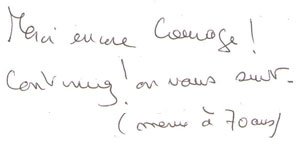 Merci encore Courage!
Continuez! on vous suit.
(même à 70 ans)